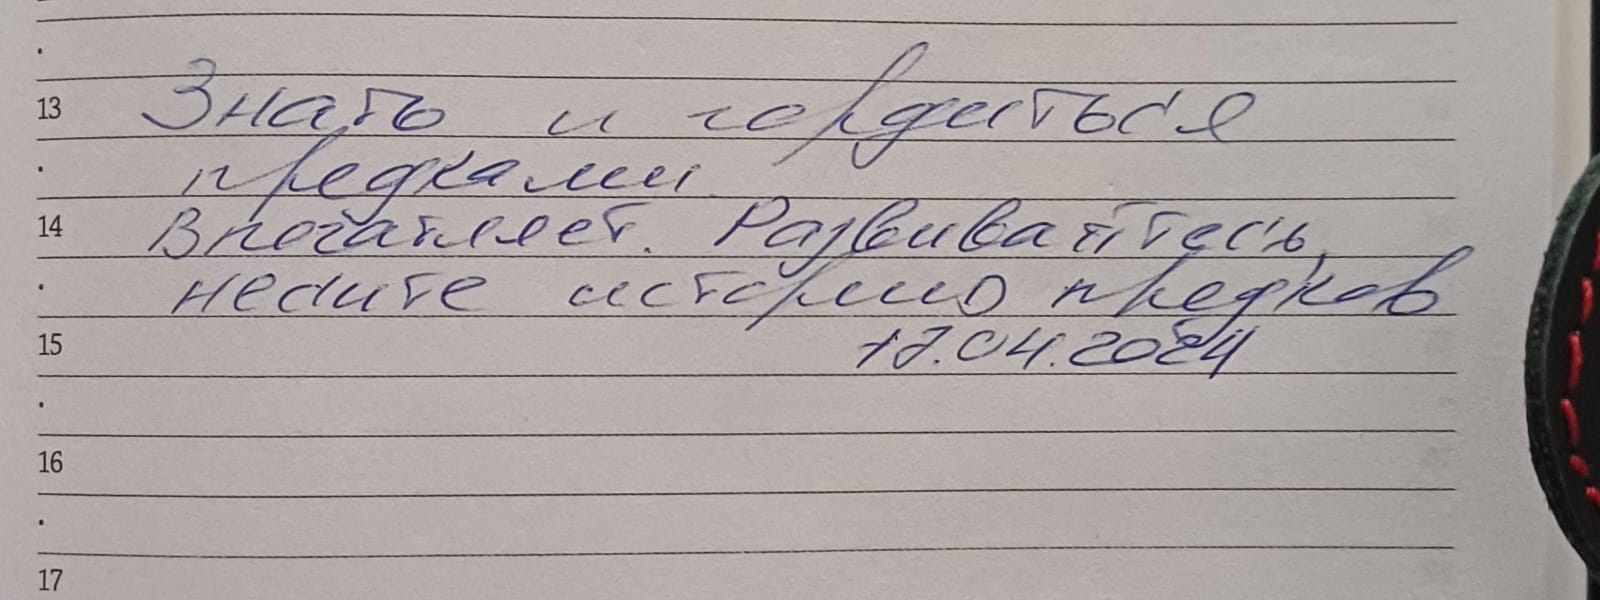 13 Знать и гордиться
предками
14 Впечатляет. Развивайтесь,
несите историю предков
15 17.04.2024
16
17